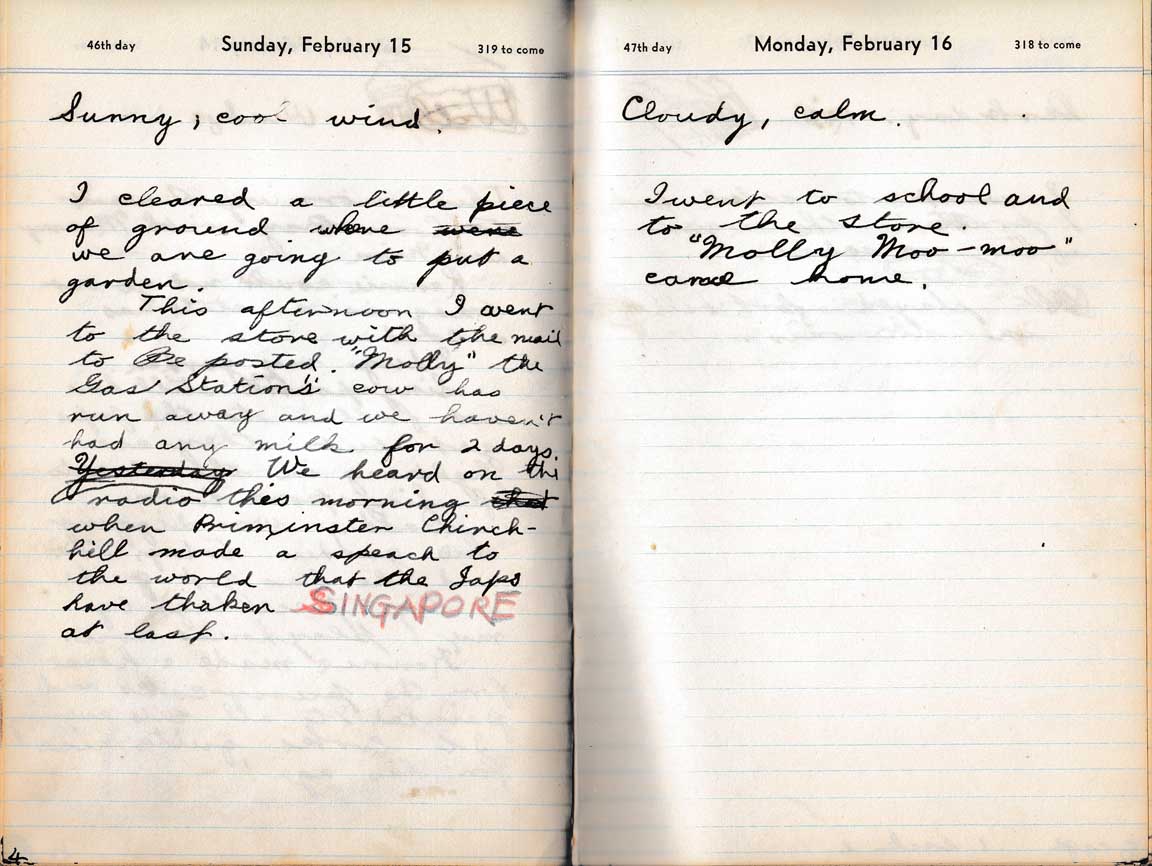 46th day Sunday, February 15 319 to come
Sunny; cool wind.
I cleared a little piece
of ground where were
we are going to put a
garden.
This afternoon I went
to the store with the mail
to Be posted. "Molly" the
Gas Station's cow has
run away and we haven't
had any milk for 2 days.
Yesterday We heard on the
radio this morning that
when Priminster Chirch-
hill made a speach to
the world that the Japs
have thaken SINGAPORE
at last.
4
47th day Monday, February 16 318 to come
Cloudy, calm.
I went to school and
to the store.
"Molly Moo-moo"
came home.